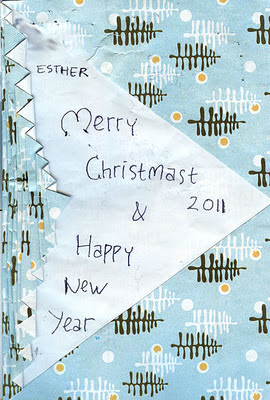 ESTHER
Merry
Christmast
& 2011
Happy
New
Year